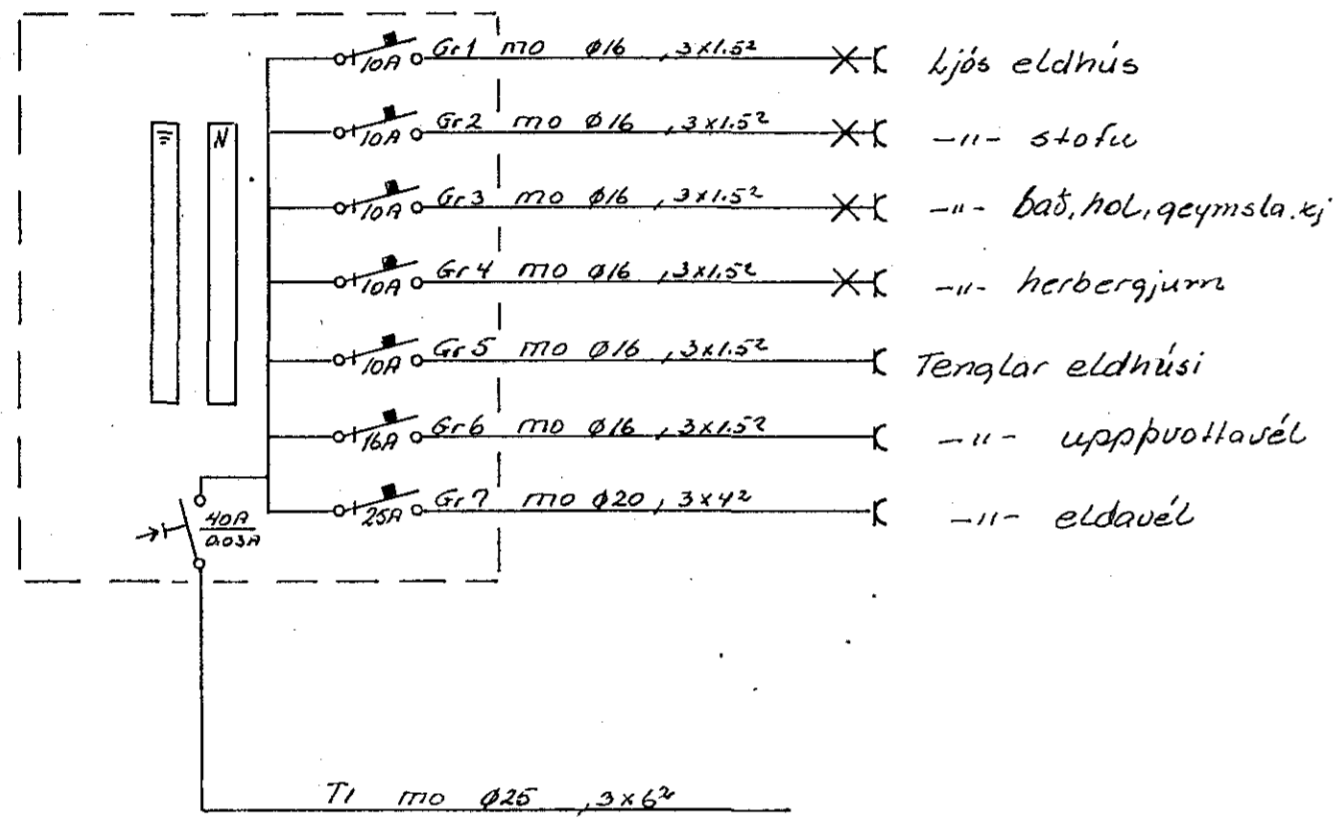 Gr1 mo ø16, 3x1.5² Ljós eldhús
10A
Gr2 mo ø16, 3x1.5² -"- stofu
10A
N
Gr3 mo ø16, 3x1.5² -"- bað, hol, geymsla. kj
10A
Gr4 mo ø16, 3x1.5² -"- herbergjum
10A
Gr5 mo ø16, 3x1.5² Tenglar eldhúsi
10A
Gr6 mo ø16, 3x1.5² -"- uppþvottavél
16A
Gr7 mo ø20, 3x4² -"- eldavél
25A
40A
0.03A
T1 mo ø25, 3x6²